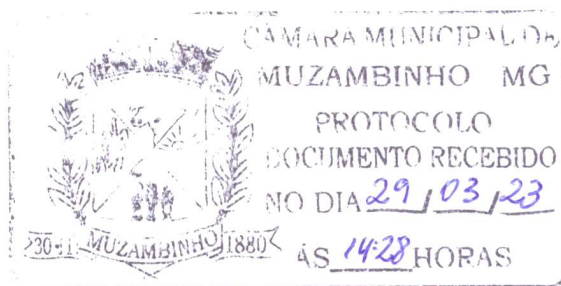 CÂMARA MUNICIPAL DE
MUZAMBINHO MG
PROTOCOLO
DOCUMENTO RECEBIDO
NO DIA 29 / 03 / 23
ÀS 14:28 HORAS
30-11 MUZAMBINHO 1880